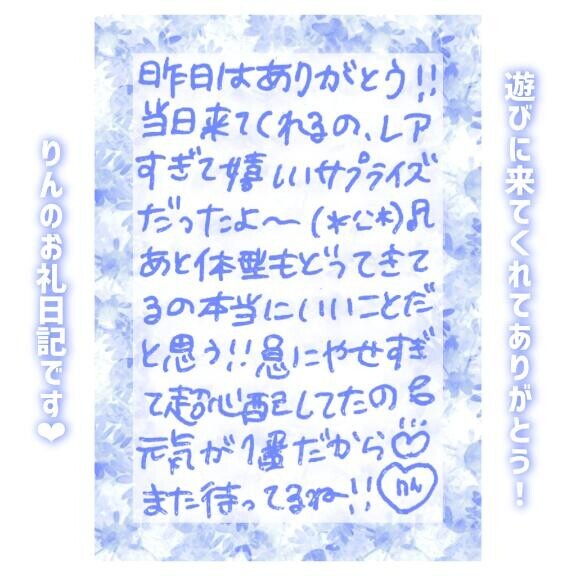 遊びに来てくれてありがとう！
昨日はありがとう!!
当日来てくれるの、レア
すぎて嬉しいサプライズ
だったよ〜(*^^*)♬
あと体型もどってきて
るの本当にいいことだ
と思う!!急にやせすぎ
て超心配してたの
元気が1番だから
また待ってるね〜!! りん
りんのお礼日記です❤